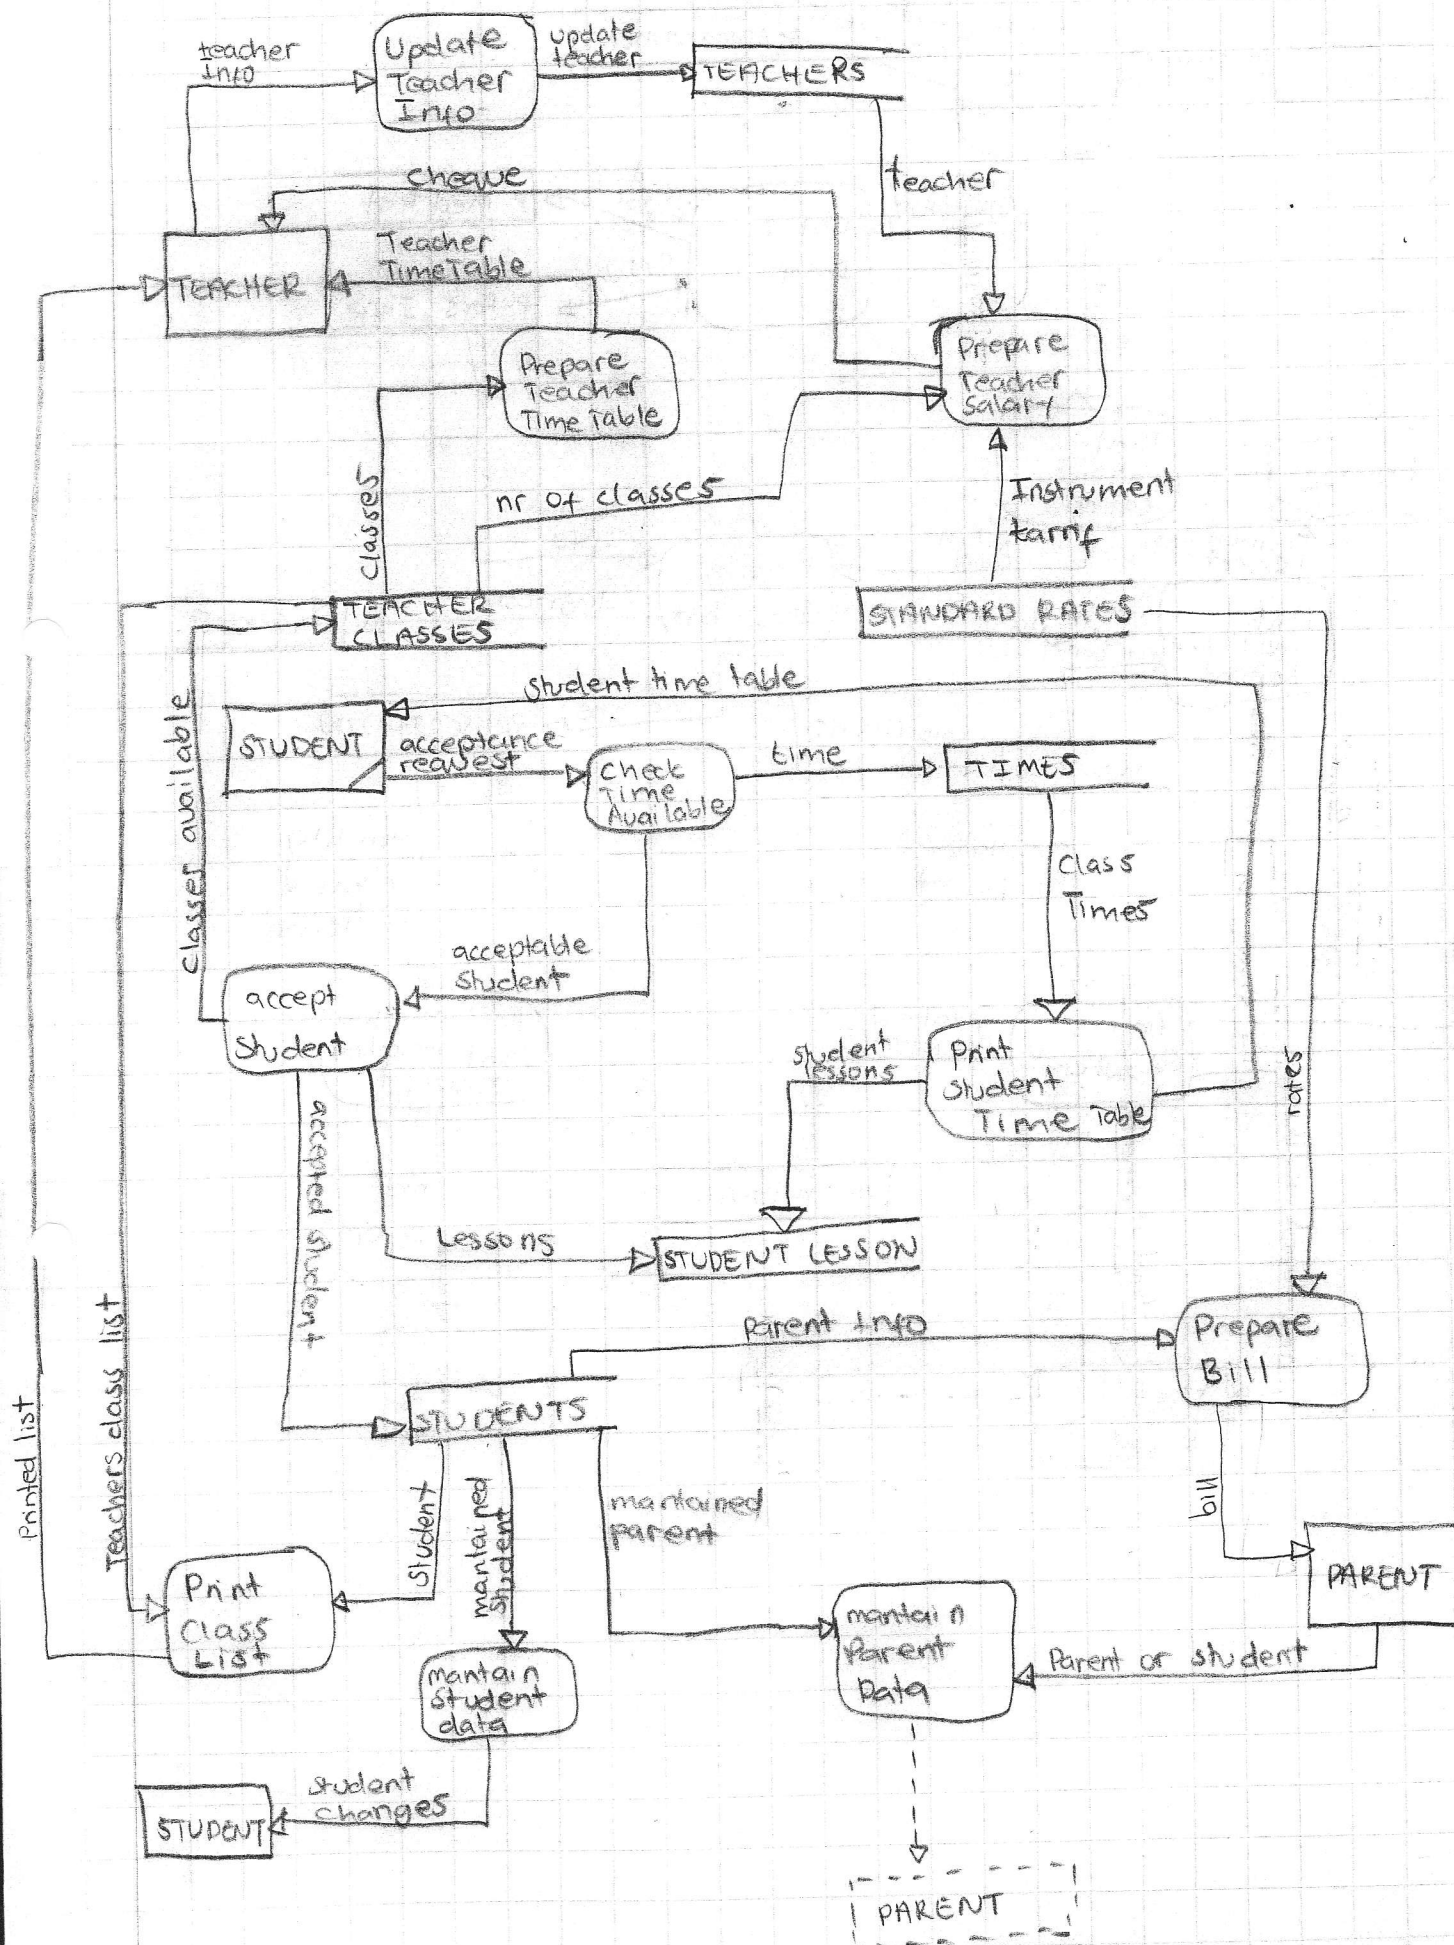 teacher
Info
Update
Teacher
Info
update
teacher
TEACHERS
teacher
cheque
TEACHER
Teacher
TimeTable
Prepare
Teacher
Time Table
Prepare
Teacher
Salary
Classes
nr of classes
Instrument
tarrif
TEACHER
CLASSES
STANDARD RATES
Student time table
STUDENT
acceptance
request
Check
Time
Available
time
TIMES
Classes available
Class
Times
acceptable
Student
accept
Student
student
lessons
Print
Student
Time Table
rates
accepted student
Lessons
STUDENT LESSON
Parent Info
Prepare
Bill
STUDENTS
Printed list
Teachers class list
Student
mantained
Student
mantained
parent
bill
PARENT
Print
Class
List
mantain
Student
data
mantain
Parent
Data
Parent or student
student
changes
STUDENT
PARENT